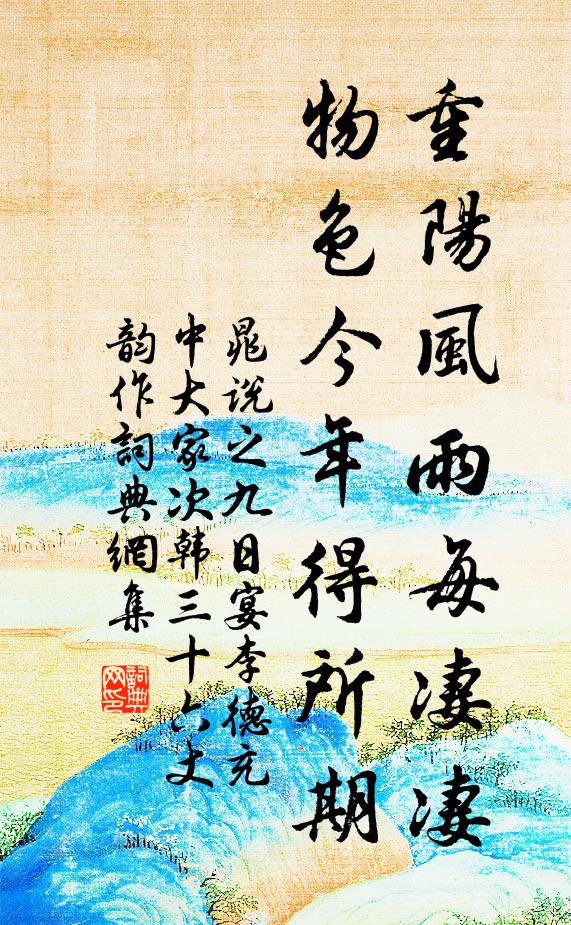 重陽風雨每淒淒
物色今年得所期
晁说之九日宴李德充
中大家次韩三十六丈
韵作詞典網集
詞典网印